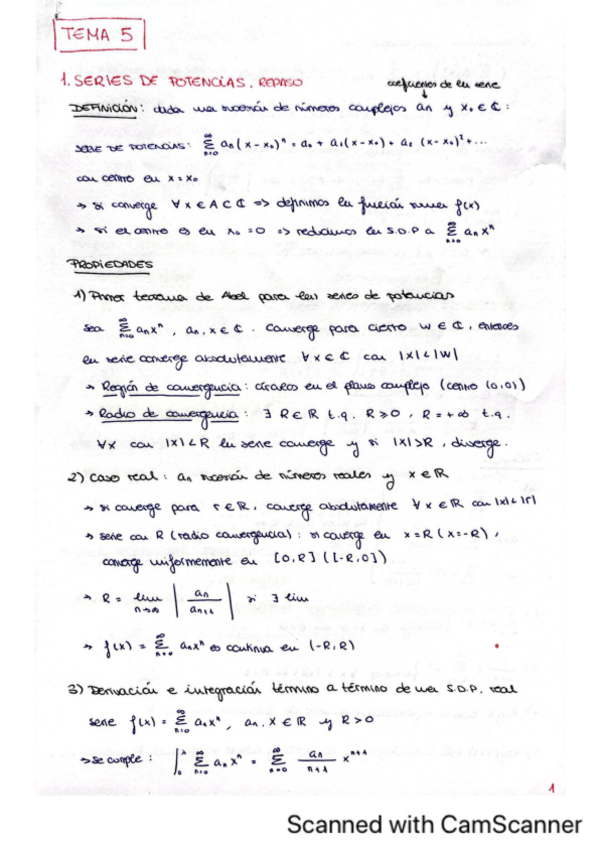 TEMA 5
1. SERIES DE POTENCIAS. REPASO
coeficientes de la serie
DEFINICIÓN: dada una sucesión de números complejos an y x₀ ∈ ℂ:
SERIE DE POTENCIAS: ∞ Σ n=0 an(x-x₀)ⁿ = a₀ + a₁(x-x₀) + a₂ (x-x₀)² + ...
con centro en x = x₀
→ si converge ∀x ∈ A ⊂ ℂ => definimos la función suma f(x)
→ si el centro es en x₀ = 0 => reducimos la S.D.P a ∞ Σ n=0 an xⁿ
PROPIEDADES
1) Primer teorema de Abel para las series de potencias
sea ∞ Σ n=0 an xⁿ, an, x ∈ ℂ. Converge para cierto w ∈ ℂ, entonces
la serie converge absolutamente ∀x ∈ ℂ con |x| < |w|
→ Región de convergencia: círculos en el plano complejo (centro (0,0))
→ Radio de convergencia: ∃ R ∈ ℝ t.q. R ≥ 0, R = +∞ t.q.
∀x con |x| < R la serie converge y si |x| > R, diverge.
2) Caso real: an sucesión de números reales y x ∈ ℝ
→ si converge para r ∈ ℝ, converge absolutamente ∀x ∈ ℝ con |x| < |r|
→ serie con R (radio convergencia): si converge en x = R (x = -R),
converge uniformemente en [0,R] ([-R,0])
→ R = lim n→∞ | an / an+1 | si ∃ lim
→ f(x) = ∞ Σ n=0 an xⁿ es continua en (-R,R)
3) Derivación e integración término a término de una S.D.P. real
serie f(x) = ∞ Σ n=0 an xⁿ, an, x ∈ ℝ y R > 0
→ se cumple: ∫₀ˣ ∞ Σ n=0 an xⁿ = ∞ Σ n=0 an / n+1 xⁿ⁺¹
1
Scanned with CamScanner